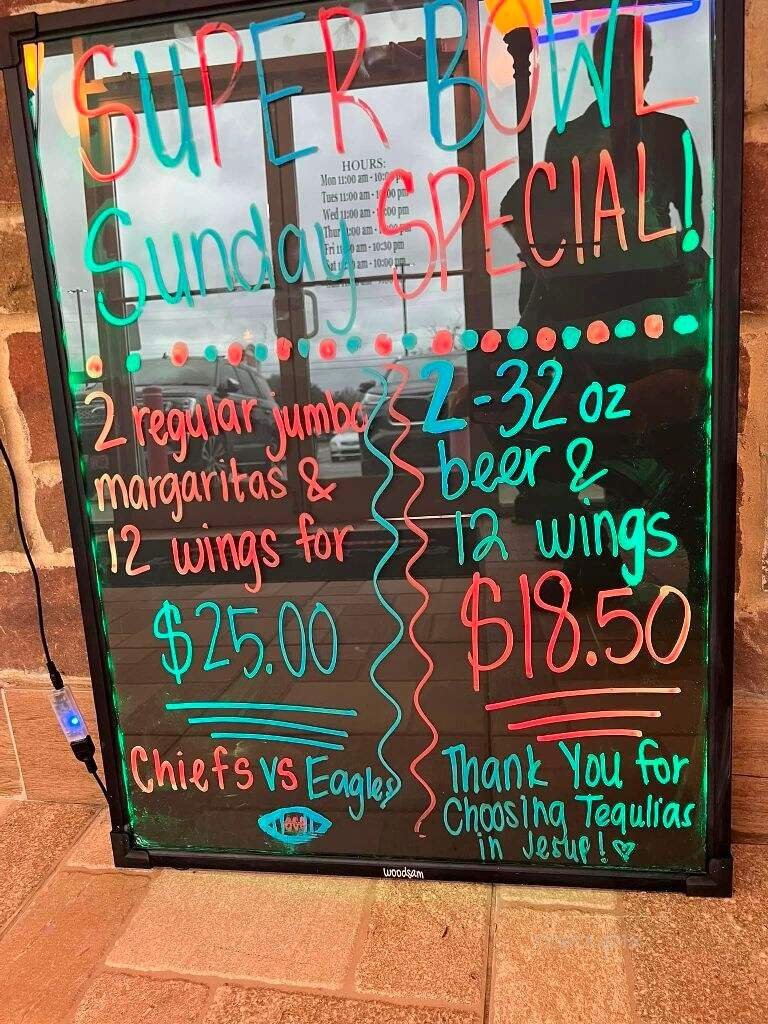 SUPER BOWL
Sunday SPECIAL!
HOURS:
Mon 11:00 am - 10:00 pm
Tues 11:00 am - 10:00 pm
Wed 11:00 am - 10:00 pm
Thur 11:00 am - 10:00 pm
Fri 11:00 am - 10:30 pm
Sat 11:00 am - 10:00 pm
2 regular jumbo
margaritas &
12 wings for
$25.00
2-32 oz
beer &
12 wings
$18.50
Chiefs vs Eagles
Thank You for
Choosing Tequlias
in Jesup! ♡
woodsam